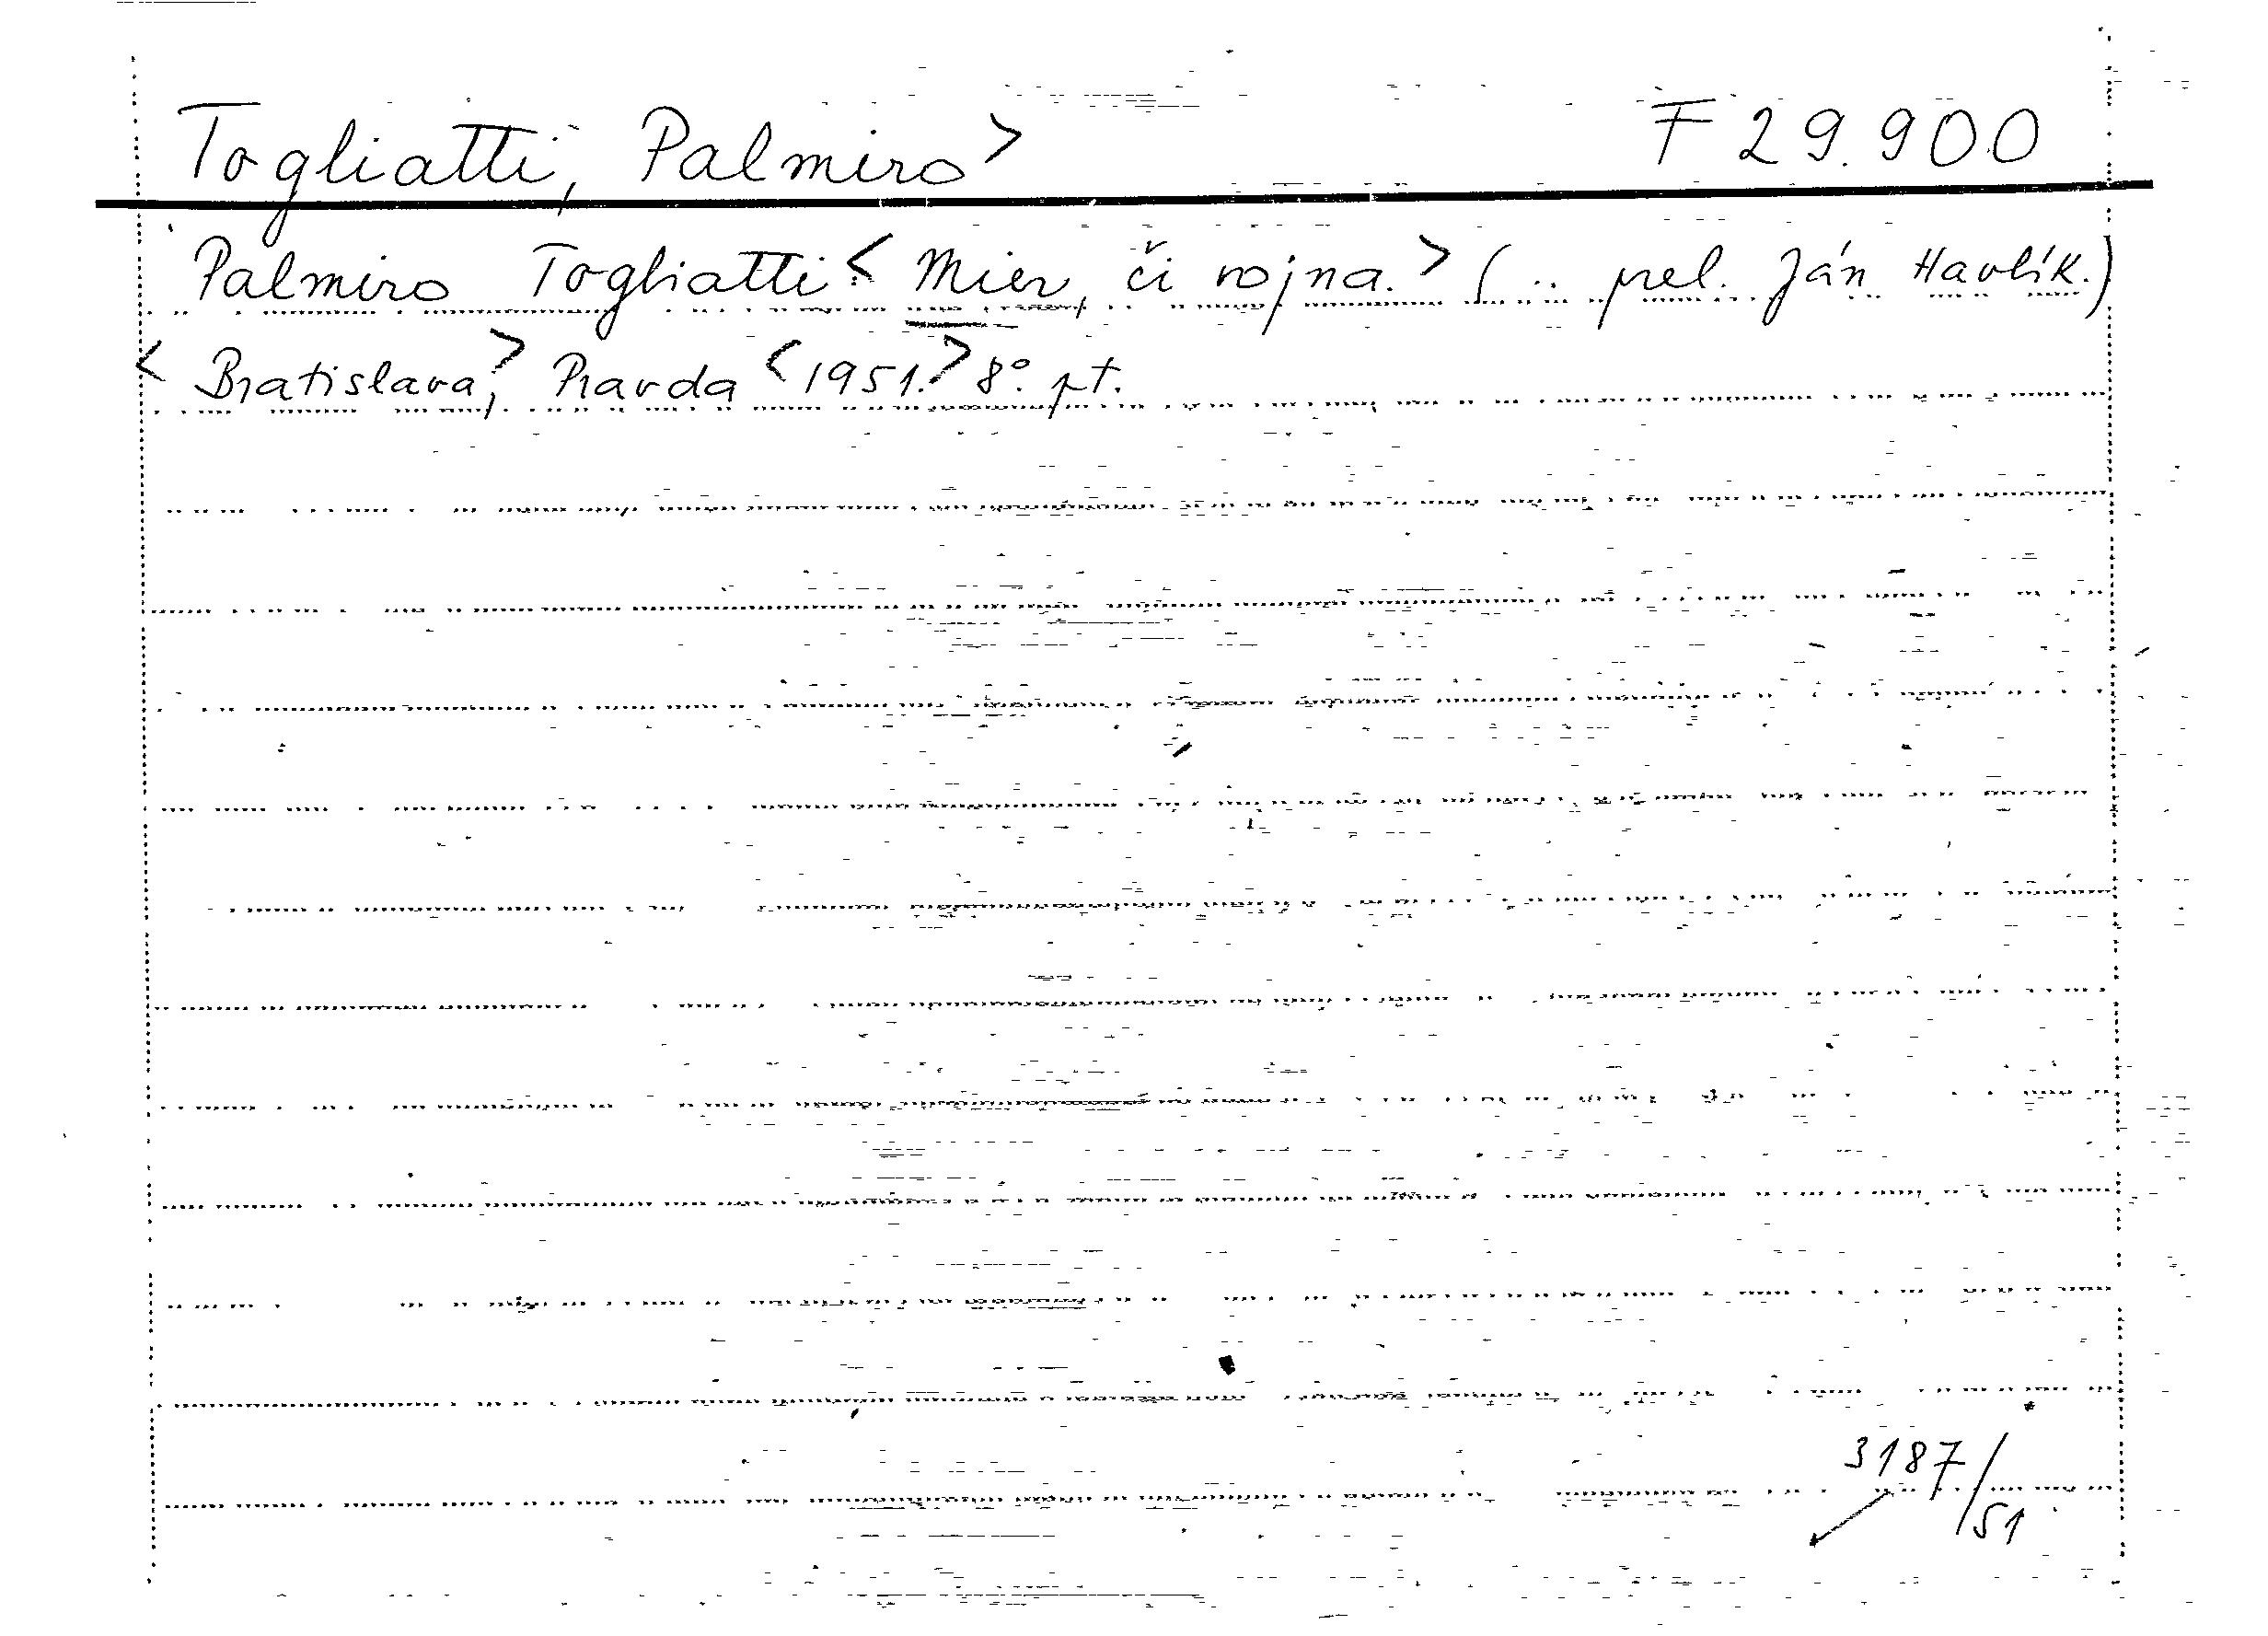 Togliatti, Palmiro> F 29.900
Palmiro Togliatti < Mier, či vojna. > (.. prel. Ján Havlík.)
< Bratislava, > Pravda < 1951. > 8°. pt.
3187/51